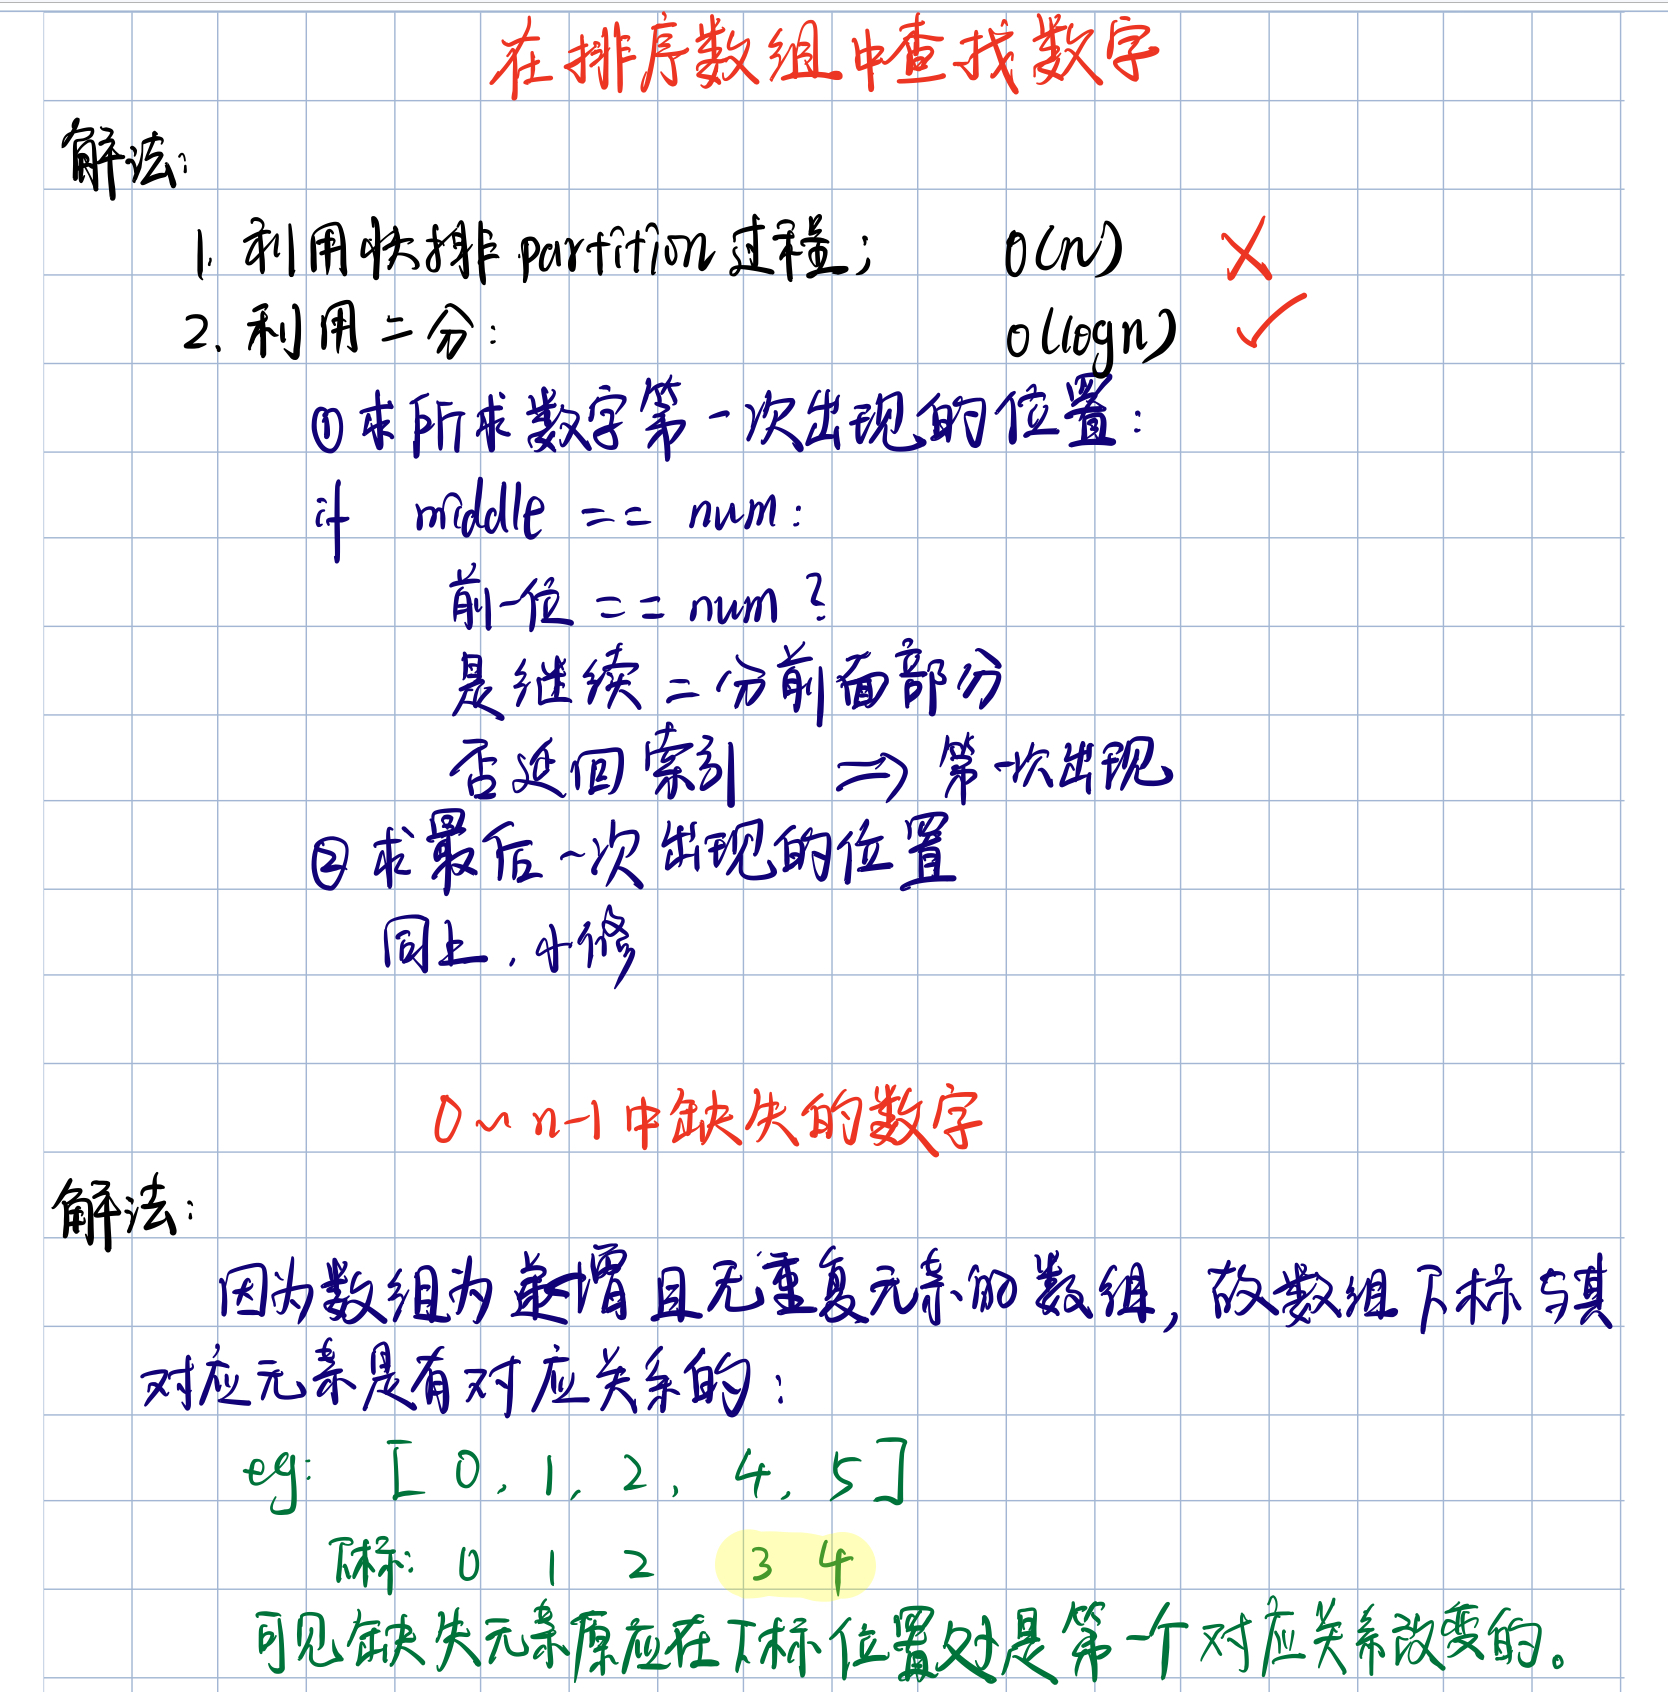 在排序数组中查找数字
解法:
1. 利用快排partition过程; O(n) ×
2. 利用二分: O(logn) ✓
①求所求数字第一次出现的位置:
if middle == num:
前一位 == num ?
是继续二分前面部分
否返回索引 ⇒ 第一次出现
②求最后一次出现的位置
同上, 小修
0~n-1中缺失的数字
解法:
因为数组为递增且无重复元素的数组, 故数组下标与其
对应元素是有对应关系的:
eg: [ 0, 1, 2, 4, 5 ]
下标: 0 1 2 3 4
可见缺失元素原应在下标位置处是第一个对应关系改变的。